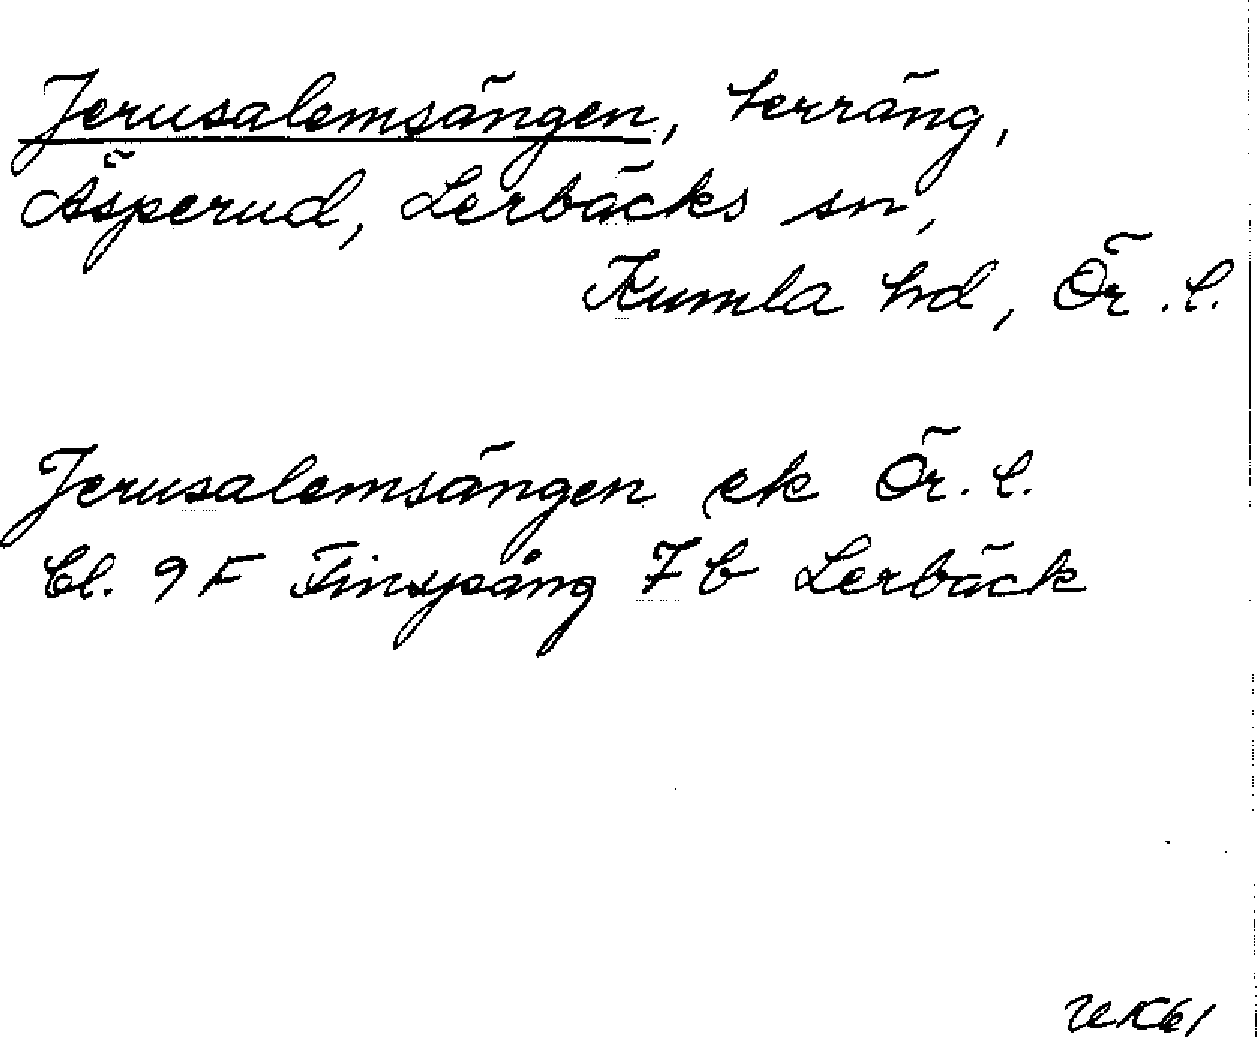 Jerusalemsängen, terräng,
Äsperud, Lerbäcks sn,
Kumla hd, Ör. l.
Jerusalemsängen ek Ör. l.
Bl. 9 F Finspång 7 b Lerbäck